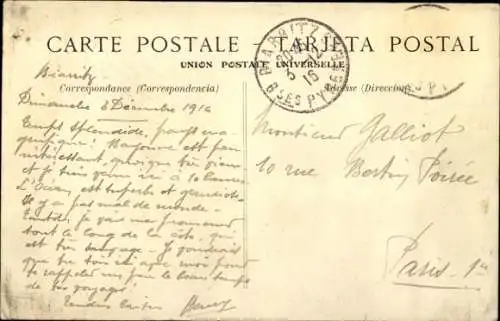 CARTE POSTALE TARJETA POSTAL
UNION POSTALE UNIVERSELLE
Correspondance (Correspondencia)
Adresse (Direccion)
BIARRITZ
BSES PYR
Biarritz
Dimanche 3 Décembre 1916
Temps splendide, pays ma-
gnifique! Bayonne est
intéressant, quoique
et je suis venu ici à
L'Océan est superbe et grandiose
Il y a pas mal de monde.
Tantôt je vais me promener
tout le long de la côte, qui
est très sauvage. Je voudrais
que tu sois ici avec moi pour
te rappeler un peu le beau temps
de voyages!
Tendres baisers
Monsieur Galliot
10 rue Bertin Poirée
Paris 1er